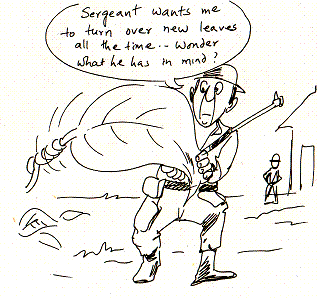 Sergeant wants me
to turn over new leaves
all the time.. Wonder
what he has in mind?